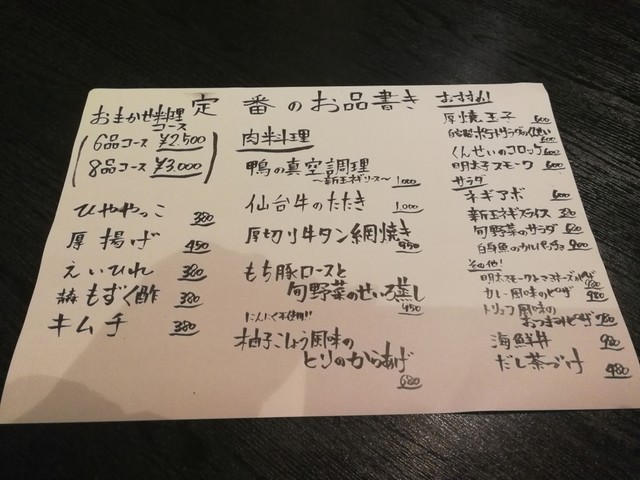 定番のお品書き
おまかせ料理
コース
6品コース ¥2,500
8品コース ¥3,000
ひややっこ 380
厚揚げ 450
えいひれ 380
もずく酢 380
キムチ 380
肉料理
鴨の真空調理
～新玉ネギソース～ 1,000
仙台牛のたたき 1,000
厚切り牛タン網焼き 950
もち豚ロースと
旬野菜のせいろ蒸し 950
にんにく不使用!!
柚子こしょう風味の
とりのからあげ 680
おすすめ!
厚焼玉子 600
ポテトサラダ 600
くんせいのコロッケ 600
明太子スモーク 600
サラダ
ネギアボ 600
新玉ネギスライス
旬野菜のサラダ
白身魚のカルパッチョ 900
その他!
明太スモークとマヨネーズのピザ 980
カレー風味のピザ 980
トリュフ風味の
おつまみピザ 780
海鮮丼 980
だし茶づけ 480